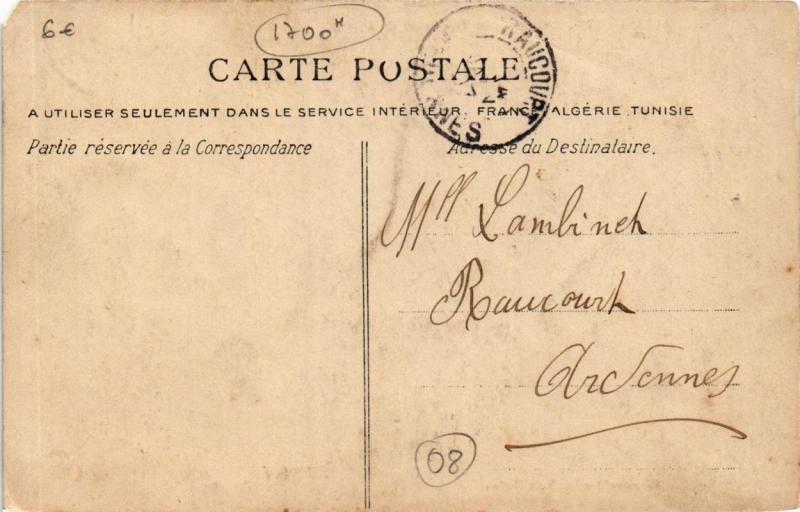 6€
1700
RAUCOURT
CARTE POSTALE
A UTILISER SEULEMENT DANS LE SERVICE INTÉRIEUR, FRANCE, ALGÉRIE, TUNISIE
Partie réservée à la Correspondance
Adresse du Destinataire.
Mll Lambinet
Raucourt
Ardennes
08